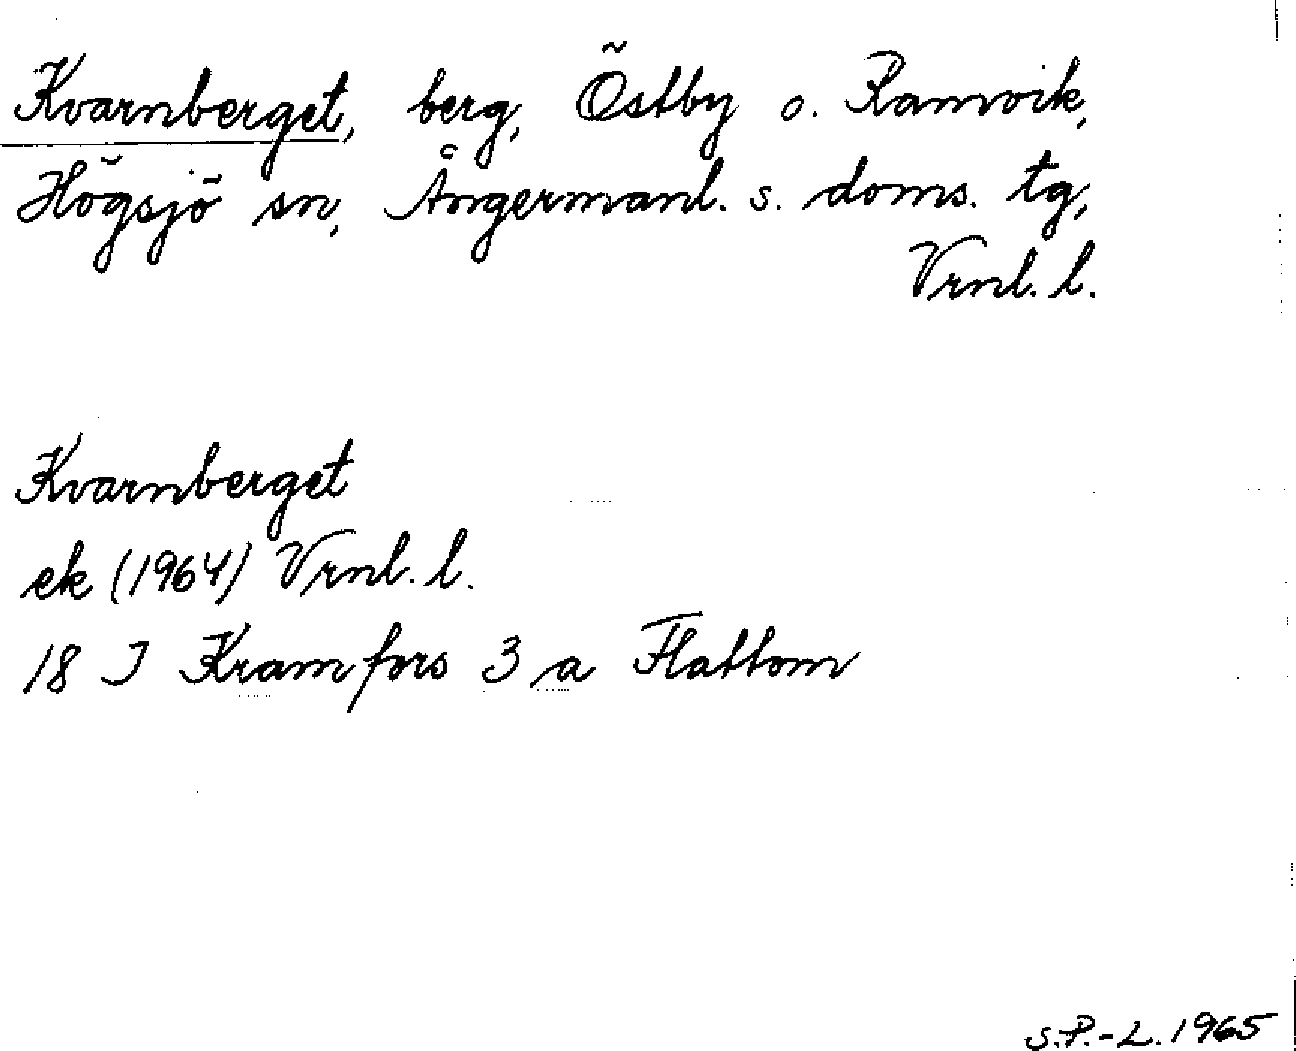 Kvarnberget, berg, Östby o. Ramvik,
Högsjö sn, Ångermanl. s. doms. tg,
Vrnl. l.
Kvarnberget
ek (1964) Vrnl. l.
18 I Kramfors 3 a Flattom
S.P.-L. 1965